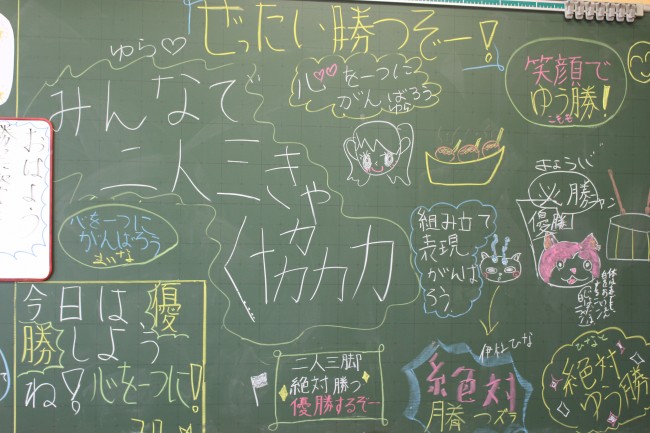 ぜったい勝つぞー!
ゆら♡
みんなで
二人三きゃく
協力
心♡♡を一つに
がんばろう
ゆら
笑顔で
ゆう勝!
こもも
おはよう
心を一つに
がんばろう
まいな
組み立て
表現
がんば
ろう。
必勝
優勝
今日は優
勝しよう
ね!心を一つに!
二人三脚
絶対勝つ
優勝するぞー
伊杜ひな
絶対
勝つズラ
ひなと
絶対
ゆう勝